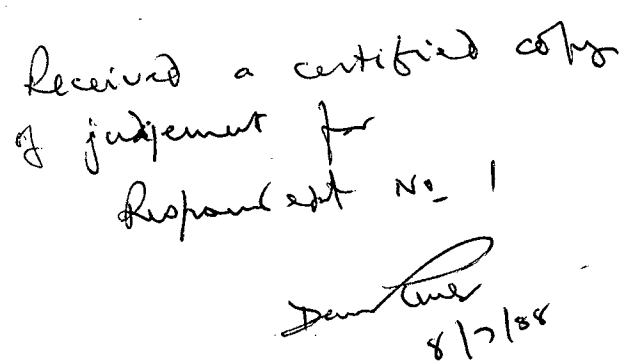 Received a certified copy
of judgement for
Respondent No 1
8/7/88